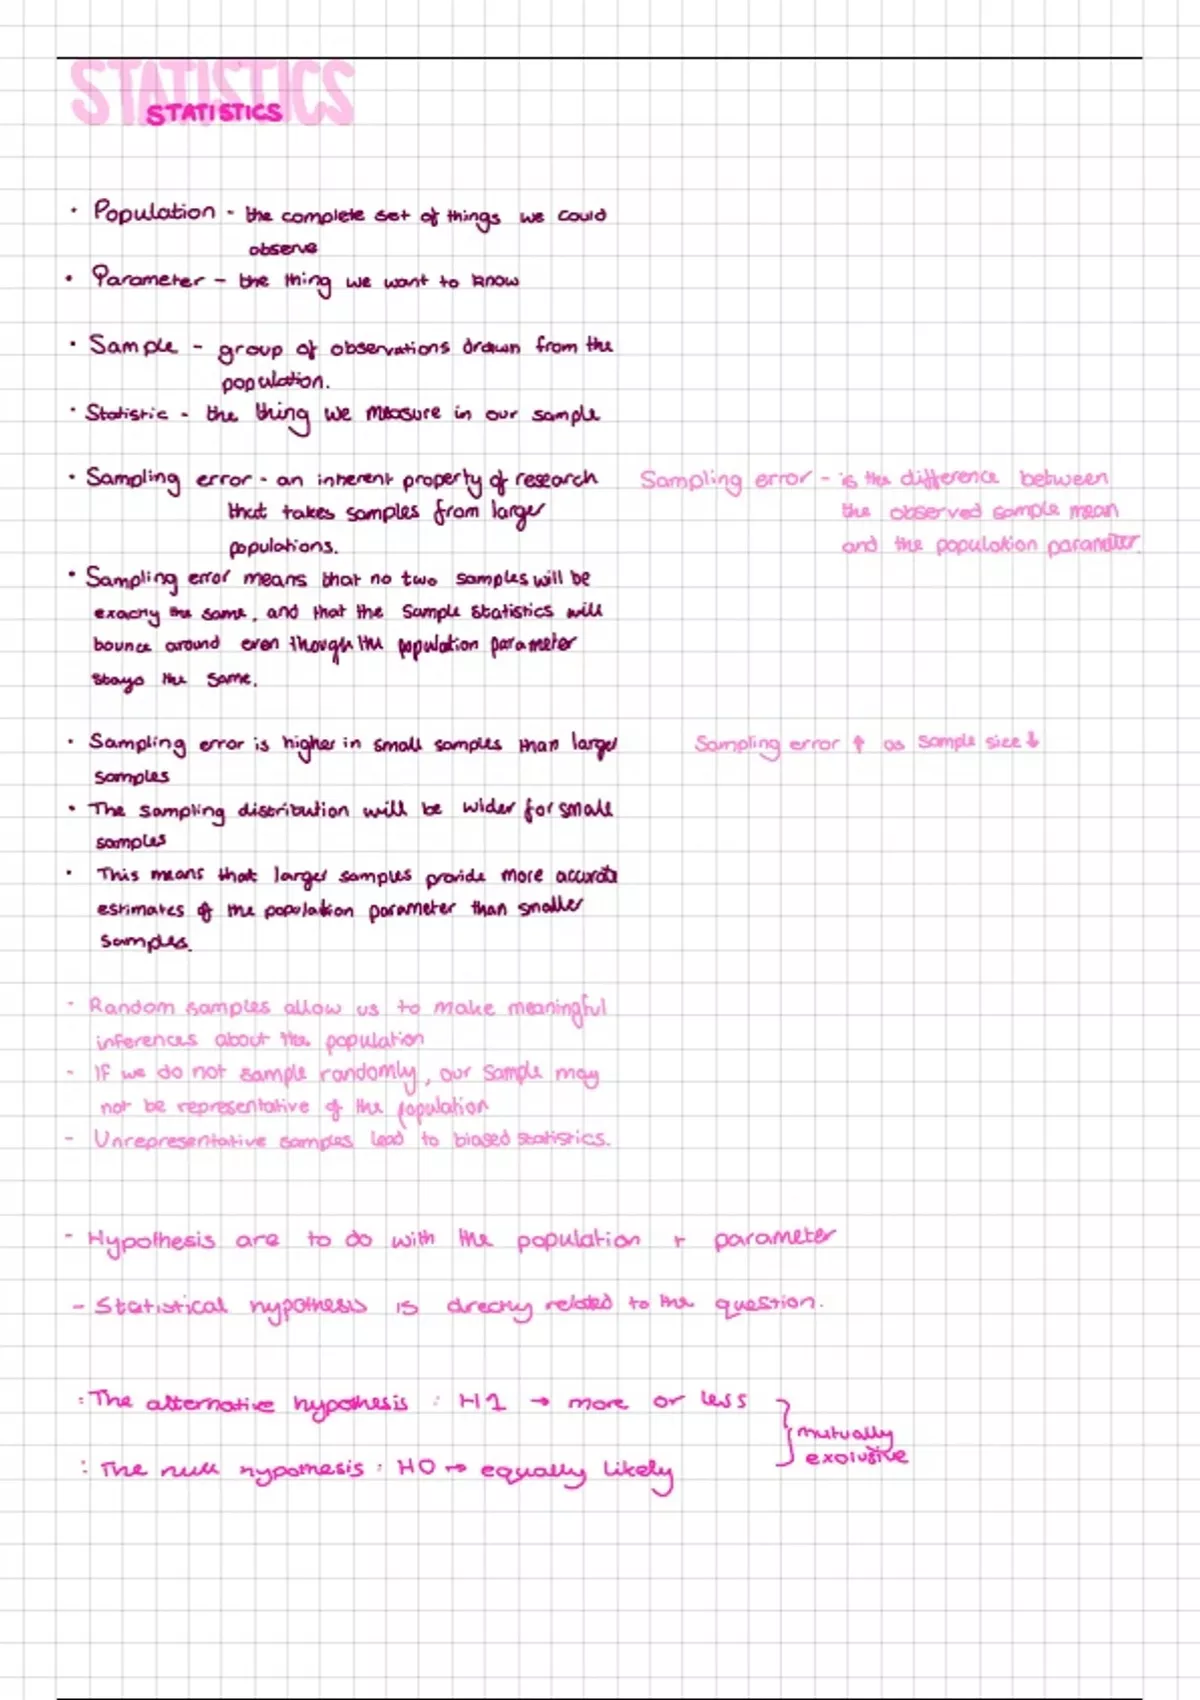 STATISTICS
STATISTICS
• Population - the complete set of things we could
observe
• Parameter - the thing we want to know
• Sample - group of observations drawn from the
population.
• Statistic - the thing we measure in our sample
• Sampling error - an inherent property of research
that takes samples from larger
populations.
Sampling error - is the difference between
the observed sample mean
and the population parameter.
• Sampling error means that no two samples will be
exactly the same, and that the sample statistics will
bounce around even though the population parameter
stays the same.
• Sampling error is higher in small samples than larger
samples
Sampling error ↑ as sample size ↓
• The sampling distribution will be wider for small
samples
• This means that larger samples provide more accurate
estimates of the population parameter than smaller
samples.
- Random samples allow us to make meaningful
inferences about the population
- If we do not sample randomly, our sample may
not be representative of the population
- Unrepresentative samples lead to biased statistics.
- Hypothesis are to do with the population + parameter
- Statistical hypothesis is directly related to the question.
: The alternative hypothesis : H1 → more or less
: The null hypothesis : H0 → equally likely
mutually
exclusive